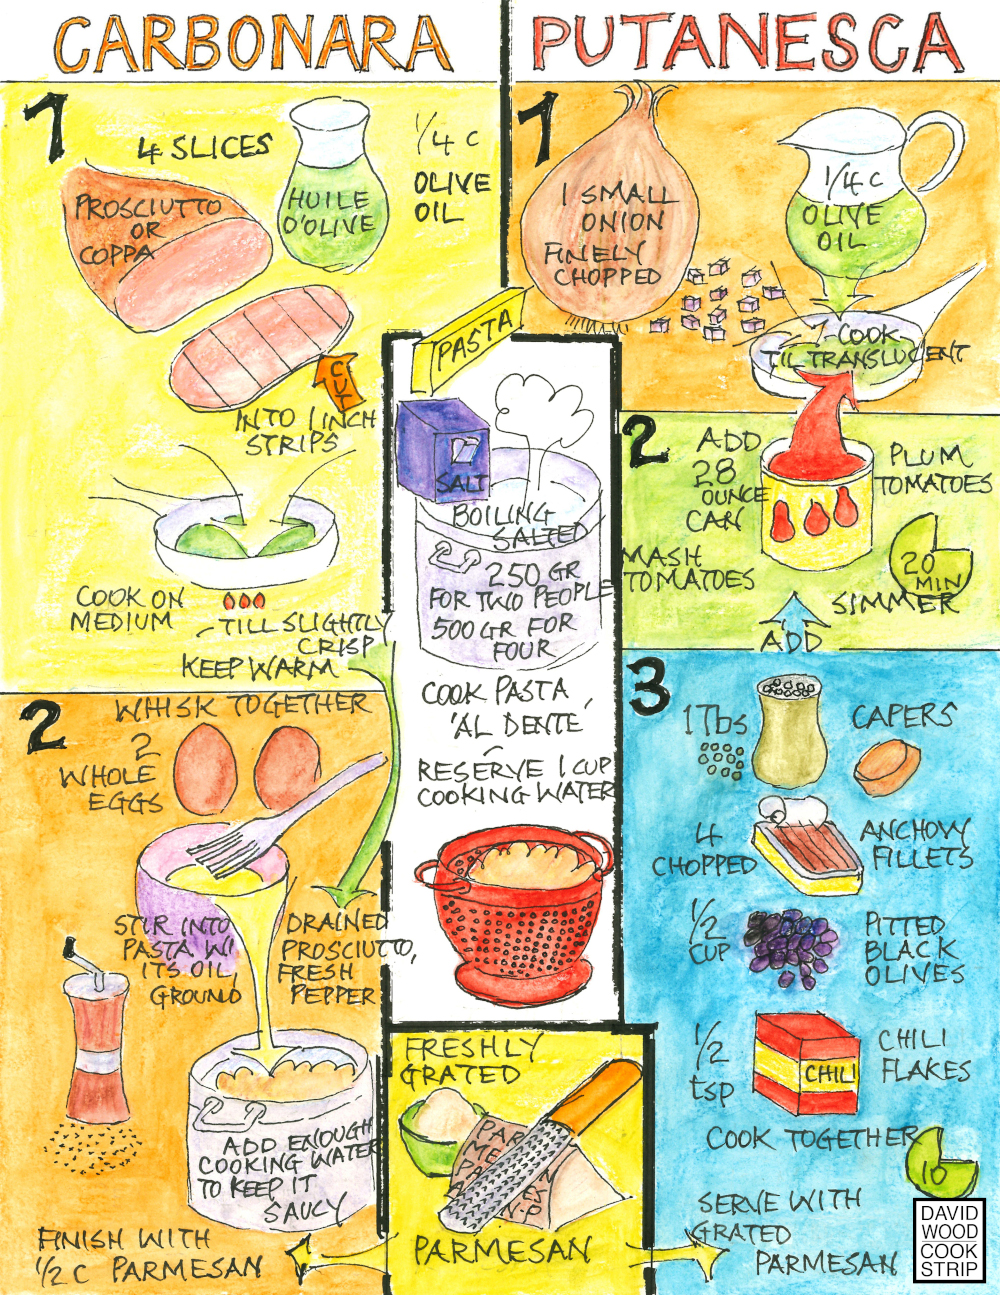 CARBONARA
1
4 SLICES
PROSCIUTTO
OR
COPPA
HUILE
D'OLIVE
1/4 C
OLIVE
OIL
CUT
INTO 1 INCH
STRIPS
COOK ON
MEDIUM
TILL SLIGHTLY
CRISP
KEEP WARM
2
WHISK TOGETHER
2
WHOLE
EGGS
STIR INTO
PASTA W/
ITS OIL,
GROUND
DRAINED
PROSCIUTTO,
FRESH
PEPPER
ADD ENOUGH
COOKING WATER
TO KEEP IT
SAUCY
FINISH WITH
1/2 C PARMESAN
PASTA
SALT
BOILING
SALTED
250 GR
FOR TWO PEOPLE
500 GR FOR
FOUR
COOK PASTA
'AL DENTE'
RESERVE 1 CUP
COOKING WATER
FRESHLY
GRATED
PARMESAN
PUTANESCA
1
1 SMALL
ONION
FINELY
CHOPPED
1/4 C
OLIVE
OIL
COOK
TIL TRANSLUCENT
2
ADD
28
OUNCE
CAN
PLUM
TOMATOES
MASH
TOMATOES
20
MIN
SIMMER
ADD
3
1 Tbs
CAPERS
4
CHOPPED
ANCHOVY
FILLETS
1/2
CUP
PITTED
BLACK
OLIVES
1/2
tsp
CHILI
CHILI
FLAKES
COOK TOGETHER
10
SERVE WITH
GRATED
PARMESAN
DAVID
WOOD
COOK
STRIP